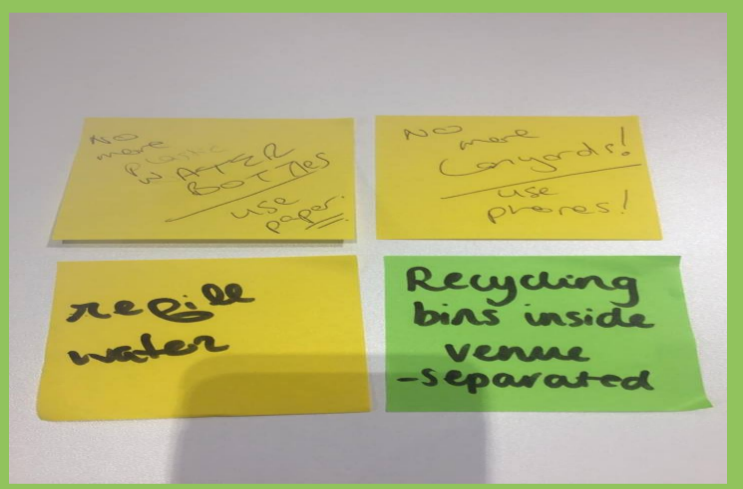 NO
more
plastic
WATER
BOTTLES
use
paper.
NO
more
Lanyards!
use
phones!
refill
water
Recycling
bins inside
venue
-separated